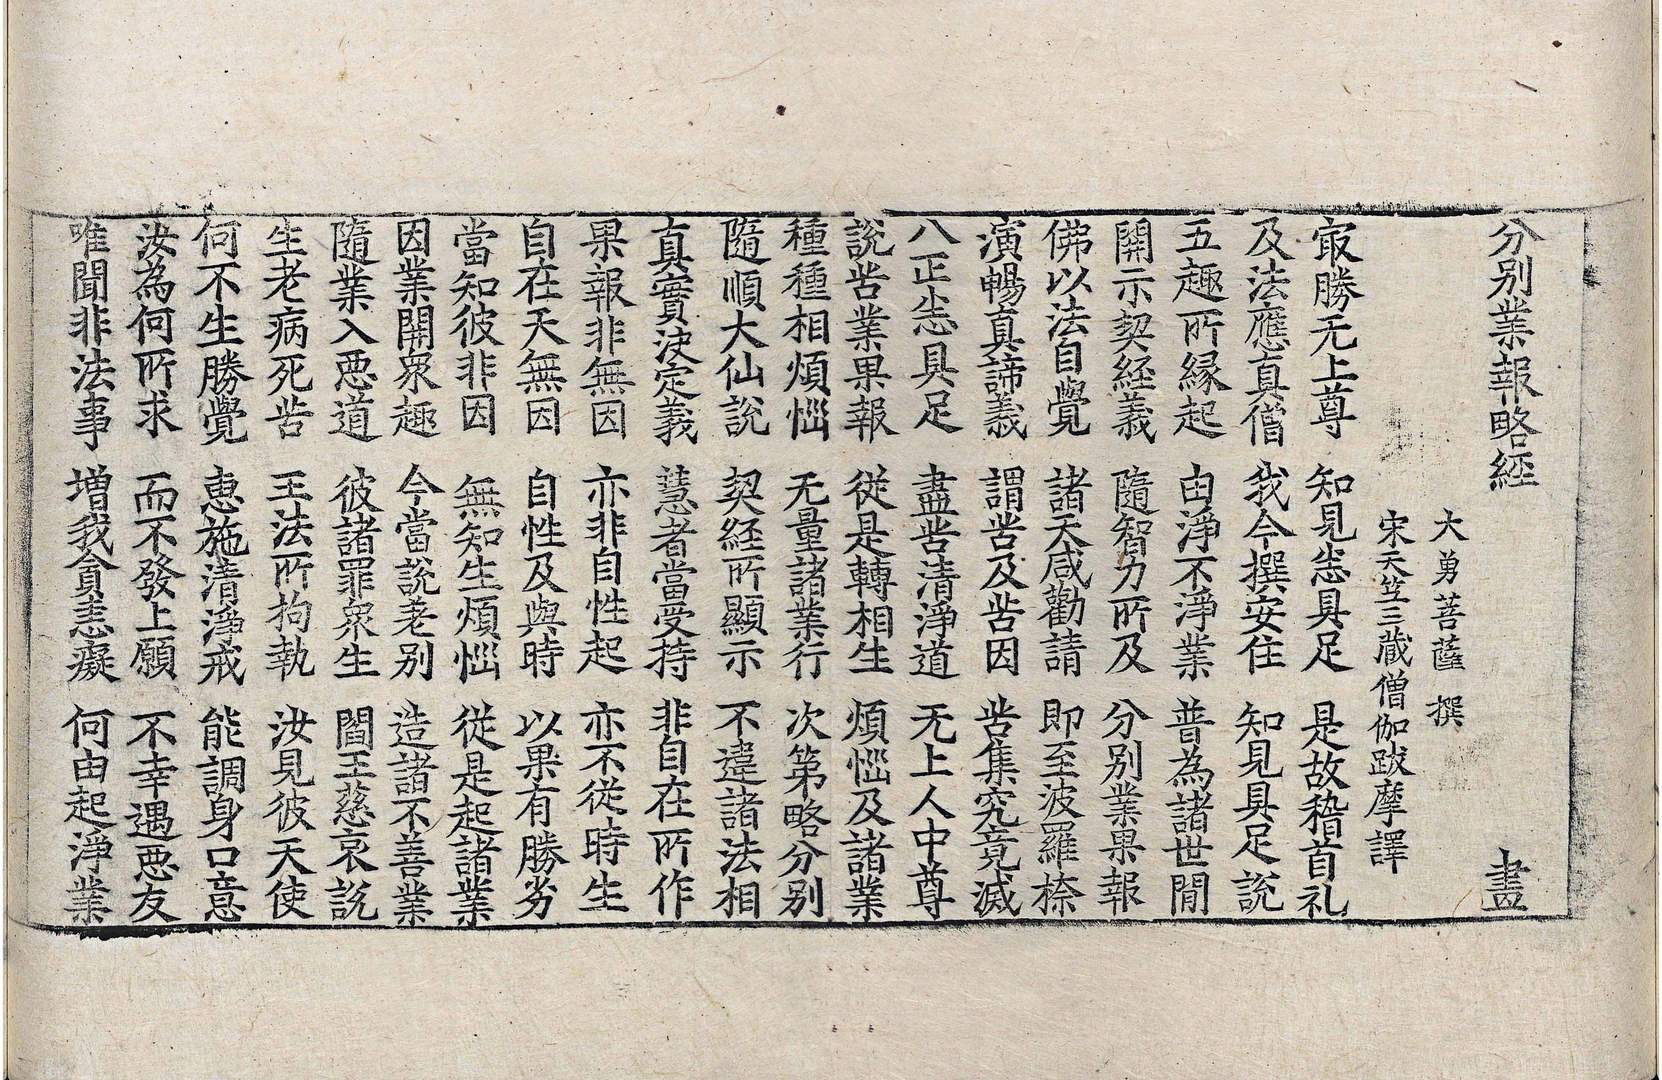 分別業報略經 盡
大勇菩薩 撰
宋天竺三藏僧伽跋摩譯
㝡勝无上尊 知見悉具足 是故稽首礼
及法應真僧 我今撰安住 知見具足說
五趣所緣起 由淨不淨業 普為諸世間
開示契經義 隨智力所及 分別業果報
佛以法自覺 諸天咸勸請 即至波羅㮈
演暢真諦義 謂苦及苦因 苦集究竟滅
八正悉具足 盡苦清淨道 无上人中尊
說苦業果報 從是轉相生 煩惱及諸業
種種相煩惱 无量諸業行 次第略分別
隨順大仙說 契經所顯示 不違諸法相
真實決定義 慧者當受持 非自在所作
果報非無因 亦非自性起 亦不從時生
自在天無因 自性及與時 以果有勝劣
當知彼非因 無知生煩惱 從是起諸業
因業開衆趣 今當說差别 造諸不善業
隨業入惡道 彼諸罪衆生 閻王慈哀說
生老病死苦 王法所拘執 汝見彼天使
何不生勝覺 惠施清淨戒 能調身口意
汝為何所求 而不發上願 不幸遇惡友
唯聞非法事 増我貪恚癡 何由起淨業